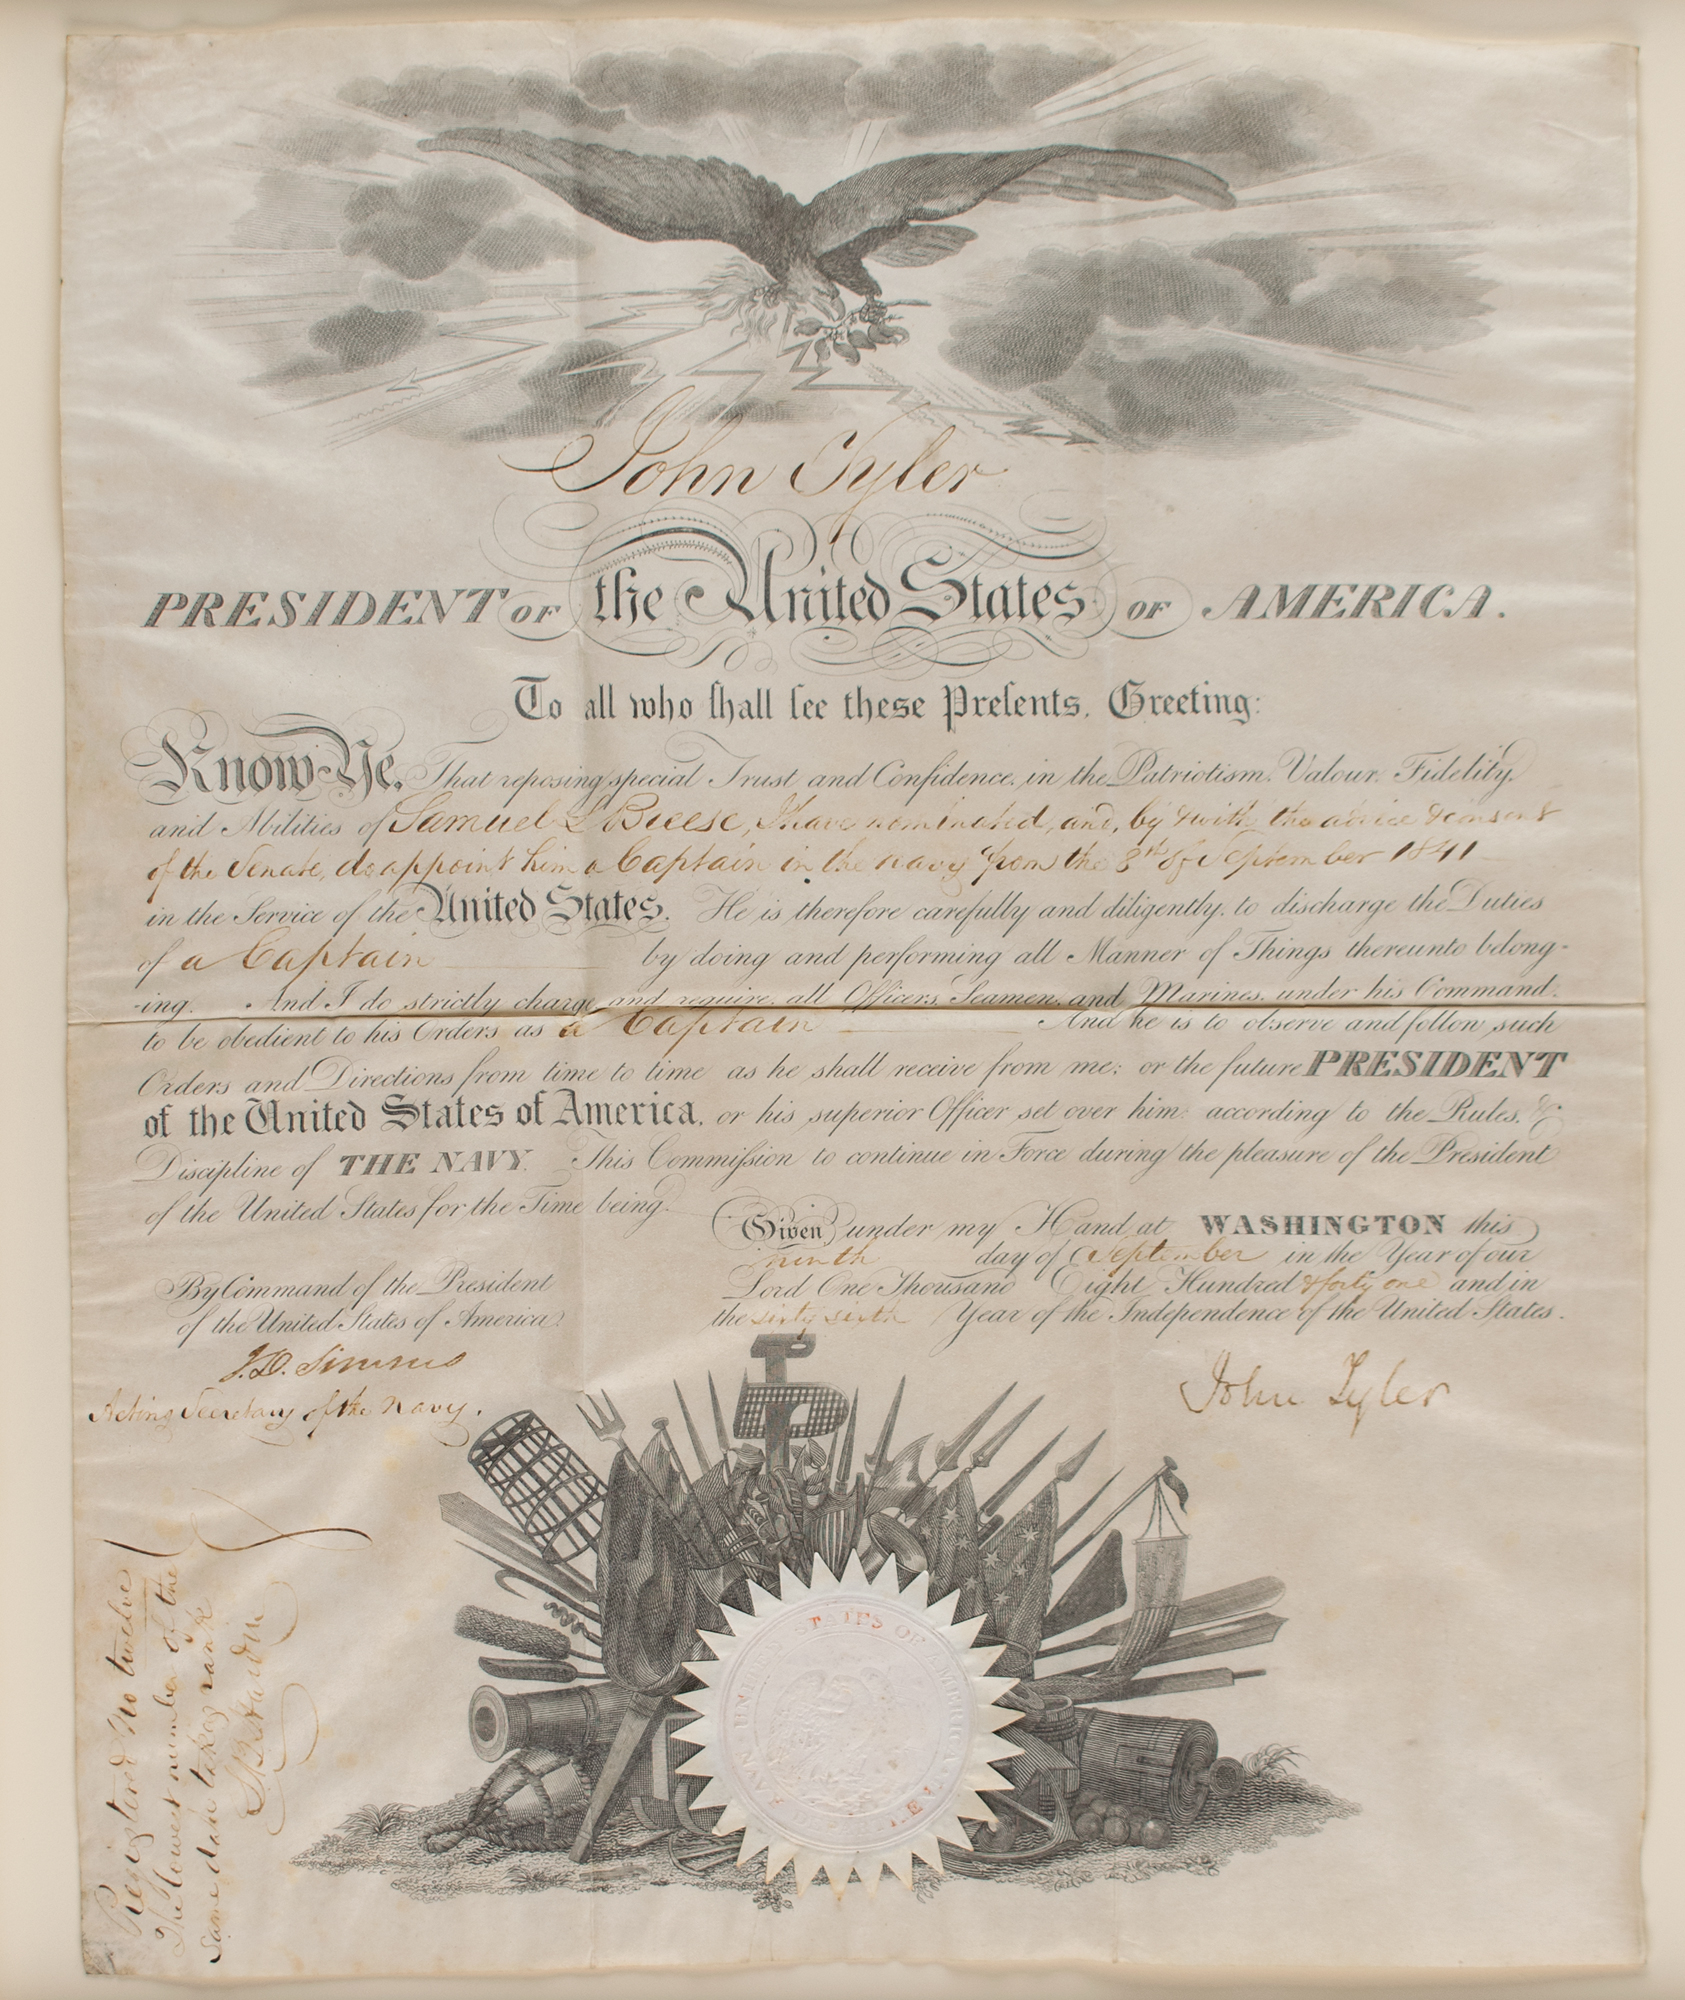 John Tyler
PRESIDENT OF the United States OF AMERICA.
To all who ſhall ſee these Preſents, Greeting:
Know Ye, That reposing special Trust and Confidence, in the Patriotism, Valour, Fidelity,
and Abilities of Samuel L Breese, I have nominated, and, by & with the advice & consent
of the Senate, do appoint him a Captain in the navy from the 8th of September 1841
in the Service of the United States. He is therefore carefully and diligently, to discharge the Duties
of a Captain by doing and performing all Manner of Things thereunto belong-
-ing. And I do strictly charge and require, all Officers, Seamen, and Marines, under his Command,
to be obedient to his Orders as a Captain And he is to observe and follow such
Orders and Directions from time to time as he shall receive from me; or the future PRESIDENT
of the United States of America, or his superior Officer set over him, according to the Rules, &
Discipline of THE NAVY. This Commiſsion to continue in Force during the pleasure of the President
of the United States for the Time being.
Given under my Hand at WASHINGTON this
ninth day of September in the Year of our
Lord One Thousand Eight Hundred & forty one and in
the sixty sixth Year of the Independence of the United States.
By Command of the President
of the United States of America
J.D. Simms
Acting Secretary of the Navy.
John Tyler
Registered No twelve
The lowest number of the
same date takes rank
UNITED STATES OF AMERICA
NAVY